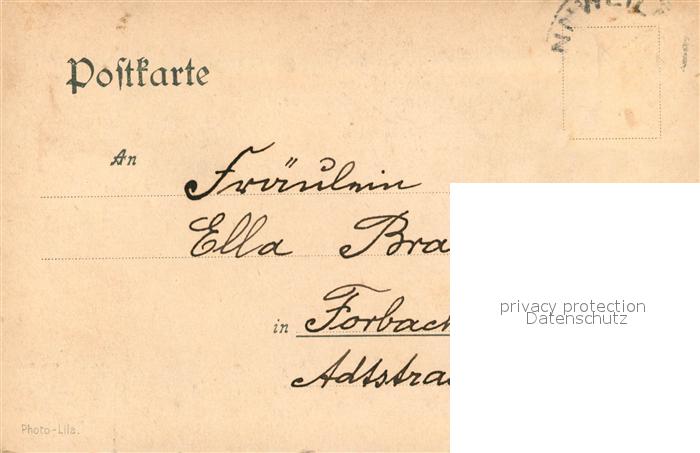 Postkarte
An
Fräulein
Ella Bra
in Forbach
Adtstra
privacy protection
Datenschutz
Photo-Lila.